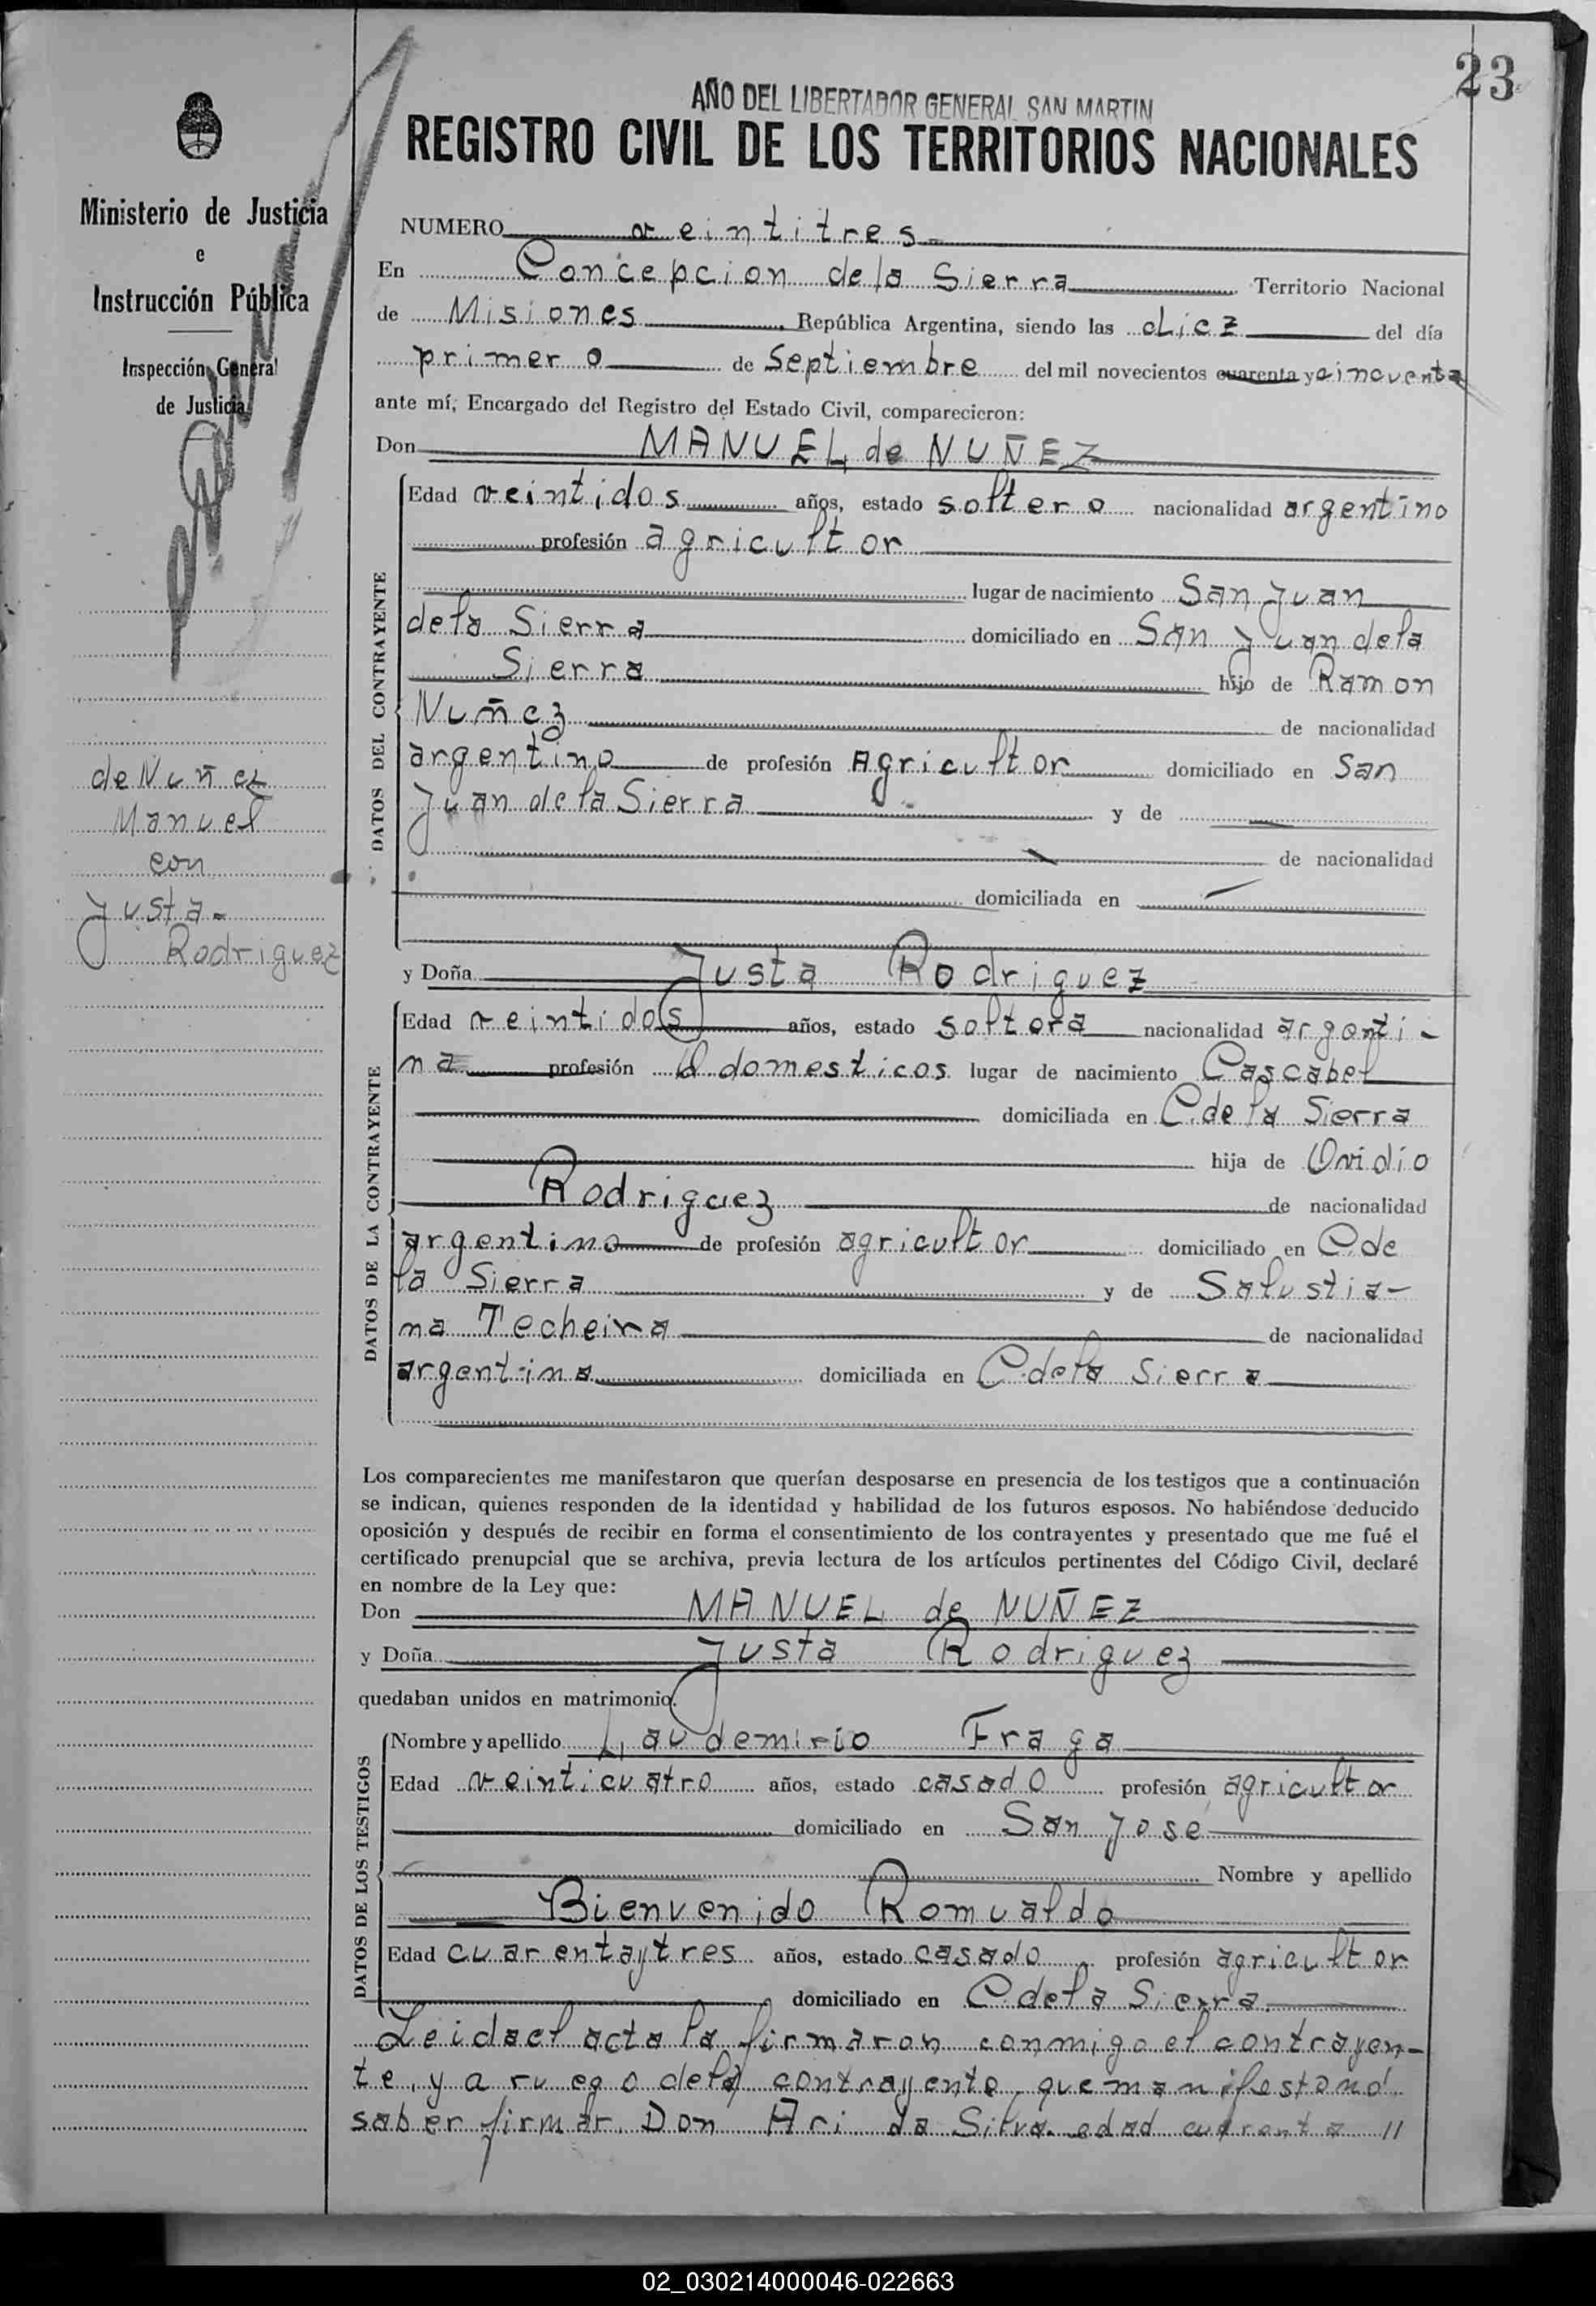 23
AÑO DEL LIBERTADOR GENERAL SAN MARTIN
REGISTRO CIVIL DE LOS TERRITORIOS NACIONALES
Ministerio de Justicia
e
Instrucción Pública
Inspección General
de Justicia
NUMERO veintitres
En Concepcion de la Sierra Territorio Nacional
de Misiones República Argentina, siendo las diez del día
primero de Septiembre del mil novecientos cuarenta y cincuenta
ante mí, Encargado del Registro del Estado Civil, comparecieron:
Don MANUEL de NUÑEZ
DATOS DEL CONTRAYENTE
Edad veintidos años, estado soltero nacionalidad argentino
profesión agricultor
lugar de nacimiento San Juan
de la Sierra domiciliado en San Juan de la
Sierra hijo de Ramon
Nuñez de nacionalidad
argentino de profesión Agricultor domiciliado en San
Juan de la Sierra y de
de nacionalidad
domiciliada en
de Nuñez
Manuel
con
Justa
Rodriguez
y Doña Justa Rodriguez
DATOS DE LA CONTRAYENTE
Edad veintidos años, estado soltera nacionalidad argenti-
na profesión Q domesticos lugar de nacimiento Cascabel
domiciliada en C. de la Sierra
hija de Ovidio
Rodriguez de nacionalidad
argentino de profesión agricultor domiciliado en C. de
la Sierra y de Salustia-
na Techeira de nacionalidad
argentina domiciliada en C. de la Sierra
Los comparecientes me manifestaron que querían desposarse en presencia de los testigos que a continuación
se indican, quienes responden de la identidad y habilidad de los futuros esposos. No habiéndose deducido
oposición y después de recibir en forma el consentimiento de los contrayentes y presentado que me fué el
certificado prenupcial que se archiva, previa lectura de los artículos pertinentes del Código Civil, declaré
en nombre de la Ley que:
Don MANUEL de NUÑEZ
y Doña Justa Rodriguez
quedaban unidos en matrimonio.
DATOS DE LOS TESTIGOS
Nombre y apellido Laudemirio Fraga
Edad veinticuatro años, estado casado profesión agricultor
domiciliado en San Jose
Nombre y apellido
Bienvenido Romualdo
Edad cuarentaytres años, estado casado profesión agricultor
domiciliado en C. de la Sierra.
Leida el acta la firmaron conmigo el contrayen-
te, y a ruego de la contrayente que manifesto no
saber firmar Don Ari da Silva. edad cuarenta //
02_030214000046-022663